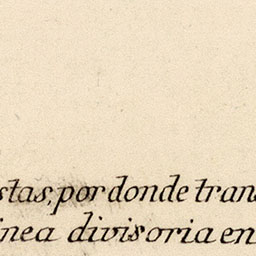 stas, por donde tran
inea divisoria en